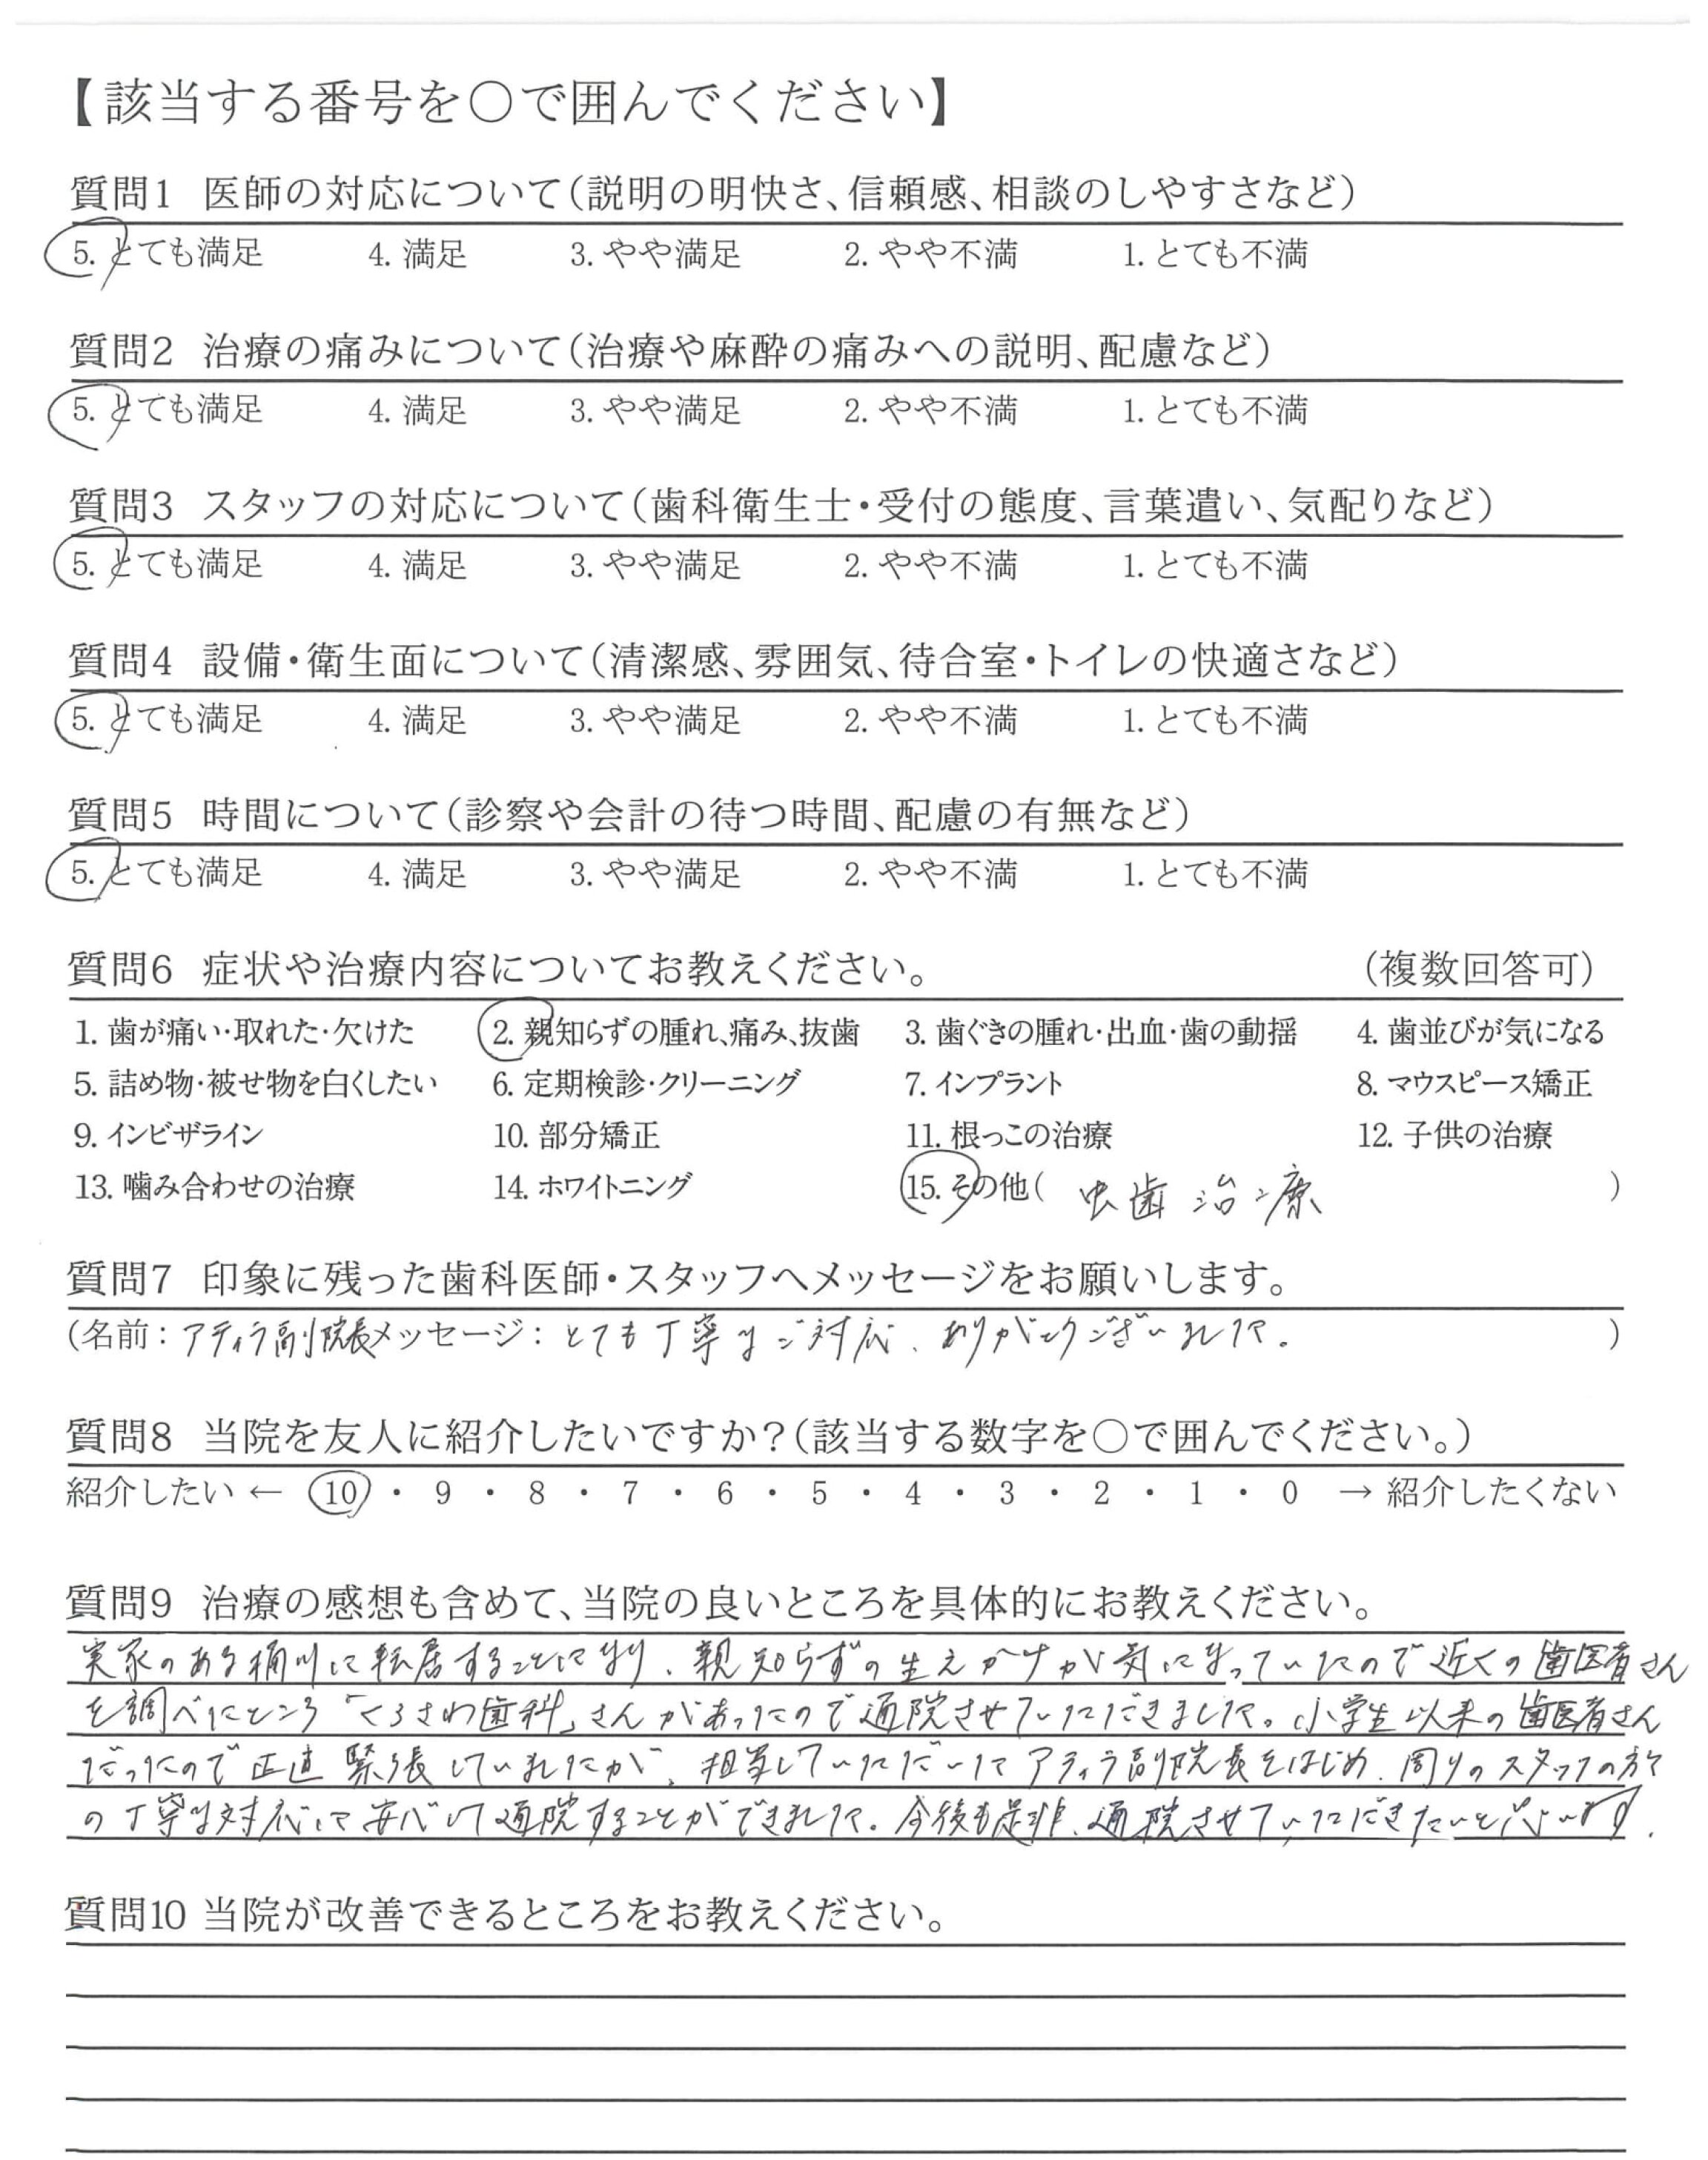 【該当する番号を○で囲んでください】
質問1 医師の対応について(説明の明快さ、信頼感、相談のしやすさなど)
5. とても満足 4. 満足 3. やや満足 2. やや不満 1. とても不満
質問2 治療の痛みについて(治療や麻酔の痛みへの説明、配慮など)
5. とても満足 4. 満足 3. やや満足 2. やや不満 1. とても不満
質問3 スタッフの対応について(歯科衛生士・受付の態度、言葉遣い、気配りなど)
5. とても満足 4. 満足 3. やや満足 2. やや不満 1. とても不満
質問4 設備・衛生面について(清潔感、雰囲気、待合室・トイレの快適さなど)
5. とても満足 4. 満足 3. やや満足 2. やや不満 1. とても不満
質問5 時間について(診察や会計の待つ時間、配慮の有無など)
5. とても満足 4. 満足 3. やや満足 2. やや不満 1. とても不満
質問6 症状や治療内容についてお教えください。 (複数回答可)
1. 歯が痛い・取れた・欠けた 2. 親知らずの腫れ、痛み、抜歯 3. 歯ぐきの腫れ・出血・歯の動揺 4. 歯並びが気になる
5. 詰め物・被せ物を白くしたい 6. 定期検診・クリーニング 7. インプラント 8. マウスピース矯正
9. インビザライン 10. 部分矯正 11. 根っこの治療 12. 子供の治療
13. 噛み合わせの治療 14. ホワイトニング 15. その他( 虫歯治療 )
質問7 印象に残った歯科医師・スタッフへメッセージをお願いします。
(名前：アティラ副院長メッセージ：とても丁寧なご対応、ありがとうございました。 )
質問8 当院を友人に紹介したいですか？(該当する数字を○で囲んでください。)
紹介したい ← 10 ・ 9 ・ 8 ・ 7 ・ 6 ・ 5 ・ 4 ・ 3 ・ 2 ・ 1 ・ 0 → 紹介したくない
質問9 治療の感想も含めて、当院の良いところを具体的にお教えください。
実家のある桶川に転居することになり、親知らずの生えかけが気になっていたので近くの歯医者さん
を調べたところ「くろさわ歯科」さんがあったので通院させていただきました。小学生以来の歯医者さん
だったので正直緊張していましたが、担当していただいたアティラ副院長をはじめ、周りのスタッフの方々
の丁寧な対応にて安心して通院することができました。今後も是非、通院させていただきたいと思います。
質問10 当院が改善できるところをお教えください。